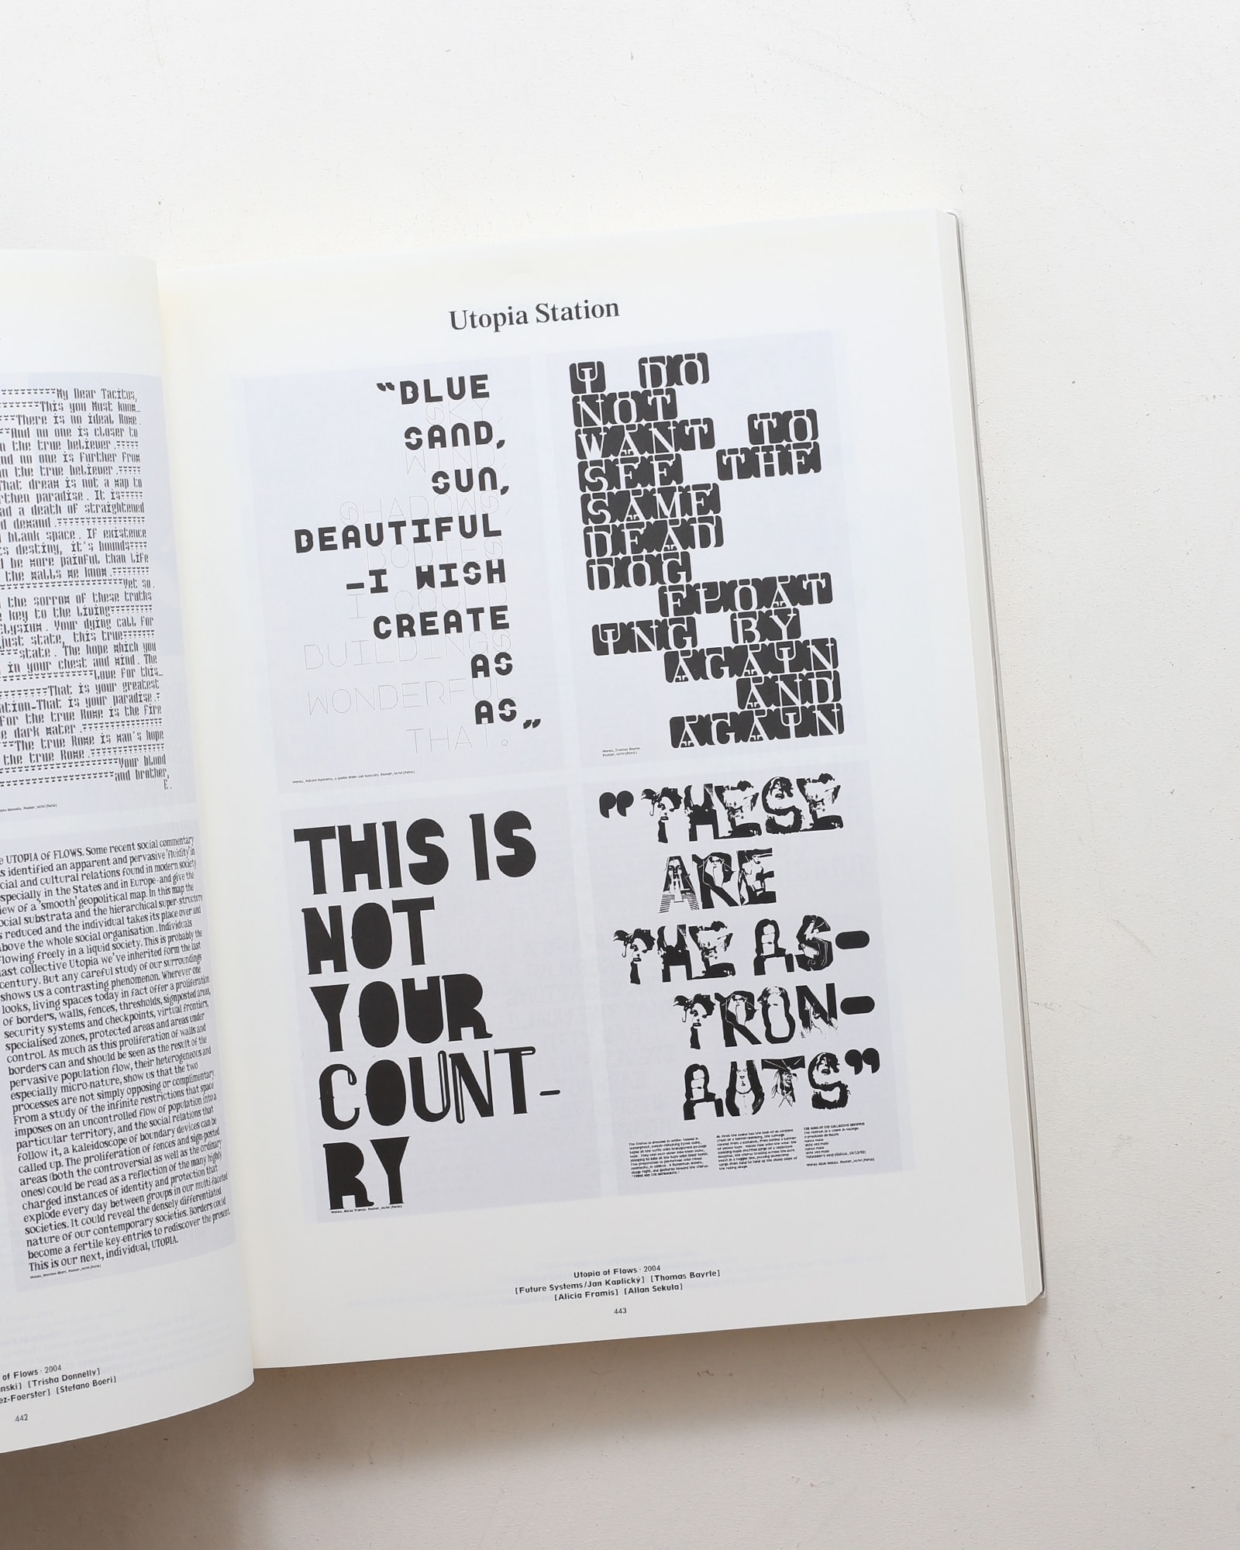 My Dear Tacitus,
This you Must know
There is no ideal Rome.
And no one is closer to
the true believer.
no one is further from
the true believer.
That dream is not a map to
paradise. It is
a death of straightened
demand.
blank space. If existence
destiny, it's bounds
be more painful than life
the walls we know.
Yet so.
the sorrow of these truths
key to the living
Elysium. Your dying call for
just state, this true
state. The hope which you
in your chest and mind. The
love for this
That is your greatest
ation-That is your paradise.
For the true Rome is the fire
dark water.
The true Rome is man's hope
the true Rome.
Your blood
and brother,
E.
UTOPIA of FLOWS. Some recent social commentary
identified an apparent and pervasive 'fluidity' in
cial and cultural relations found in modern society
specially in the States and in Europe-and give the
iew of a 'smooth' geopolitical map. In this map the
ocial substrata and the hierarchical super-structure
reduced and the individual takes its place over and
above the whole social organisation. Individuals
flowing freely in a liquid society. This is probably the
last collective Utopia we've inherited form the last
century. But any careful study of our surroundings
shows us a contrasting phenomenon. Wherever one
looks, living spaces today in fact offer a proliferation
of borders, walls, fences, thresholds, signposted areas,
security systems and checkpoints, virtual frontiers,
specialised zones, protected areas and areas under
control. As much as this proliferation of walls and
borders can and should be seen as the result of the
pervasive population flow, their heterogeneous and
especially micro-nature, show us that the two
processes are not simply opposing or complimentary
From a study of the infinite restrictions that space
imposes on an uncontrolled flow of population into a
particular territory, and the social relations that
follow it, a kaleidoscope of boundary devices can be
called up. The proliferation of fences and sign-posted
areas (both the controversial as well as the ordinary
ones) could be read as a reflection of the many highly
charged instances of identity and protection that
explode every day between groups in our multi-faceted
societies. It could reveal the densely differentiated
nature of our contemporary societies. Borders could
become a fertile key-entries to rediscover the present.
This is our next, individual, UTOPIA.
of Flows · 2004
nski] [Trisha Donnelly]
ez-Foerster] [Stefano Boeri]
442
Utopia Station
"BLUE
SKY
SAND,
WIND,
SUN,
SHADOWS,
BEAUTIFUL
BODIES
-I WISH
I COULD
CREATE
BUILDINGS
AS
WONDERFUL
AS„
THAT.
I DO
NOT
WANT TO
SEE THE
SAME
DEAD
DOG
FLOAT
ING BY
AGAIN
AND
AGAIN
THIS IS
NOT
YOUR
COUNT-
RY
"THESE
ARE
THE AS-
TRON-
AUTS"
Utopia of Flows · 2004
[Future Systems/Jan Kaplický] [Thomas Bayrle]
[Alicia Framis] [Allan Sekula]
443